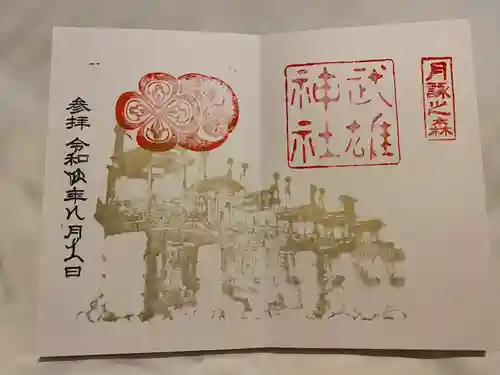 月詠之森
武雄
神社
参拝 令和 年八月 日